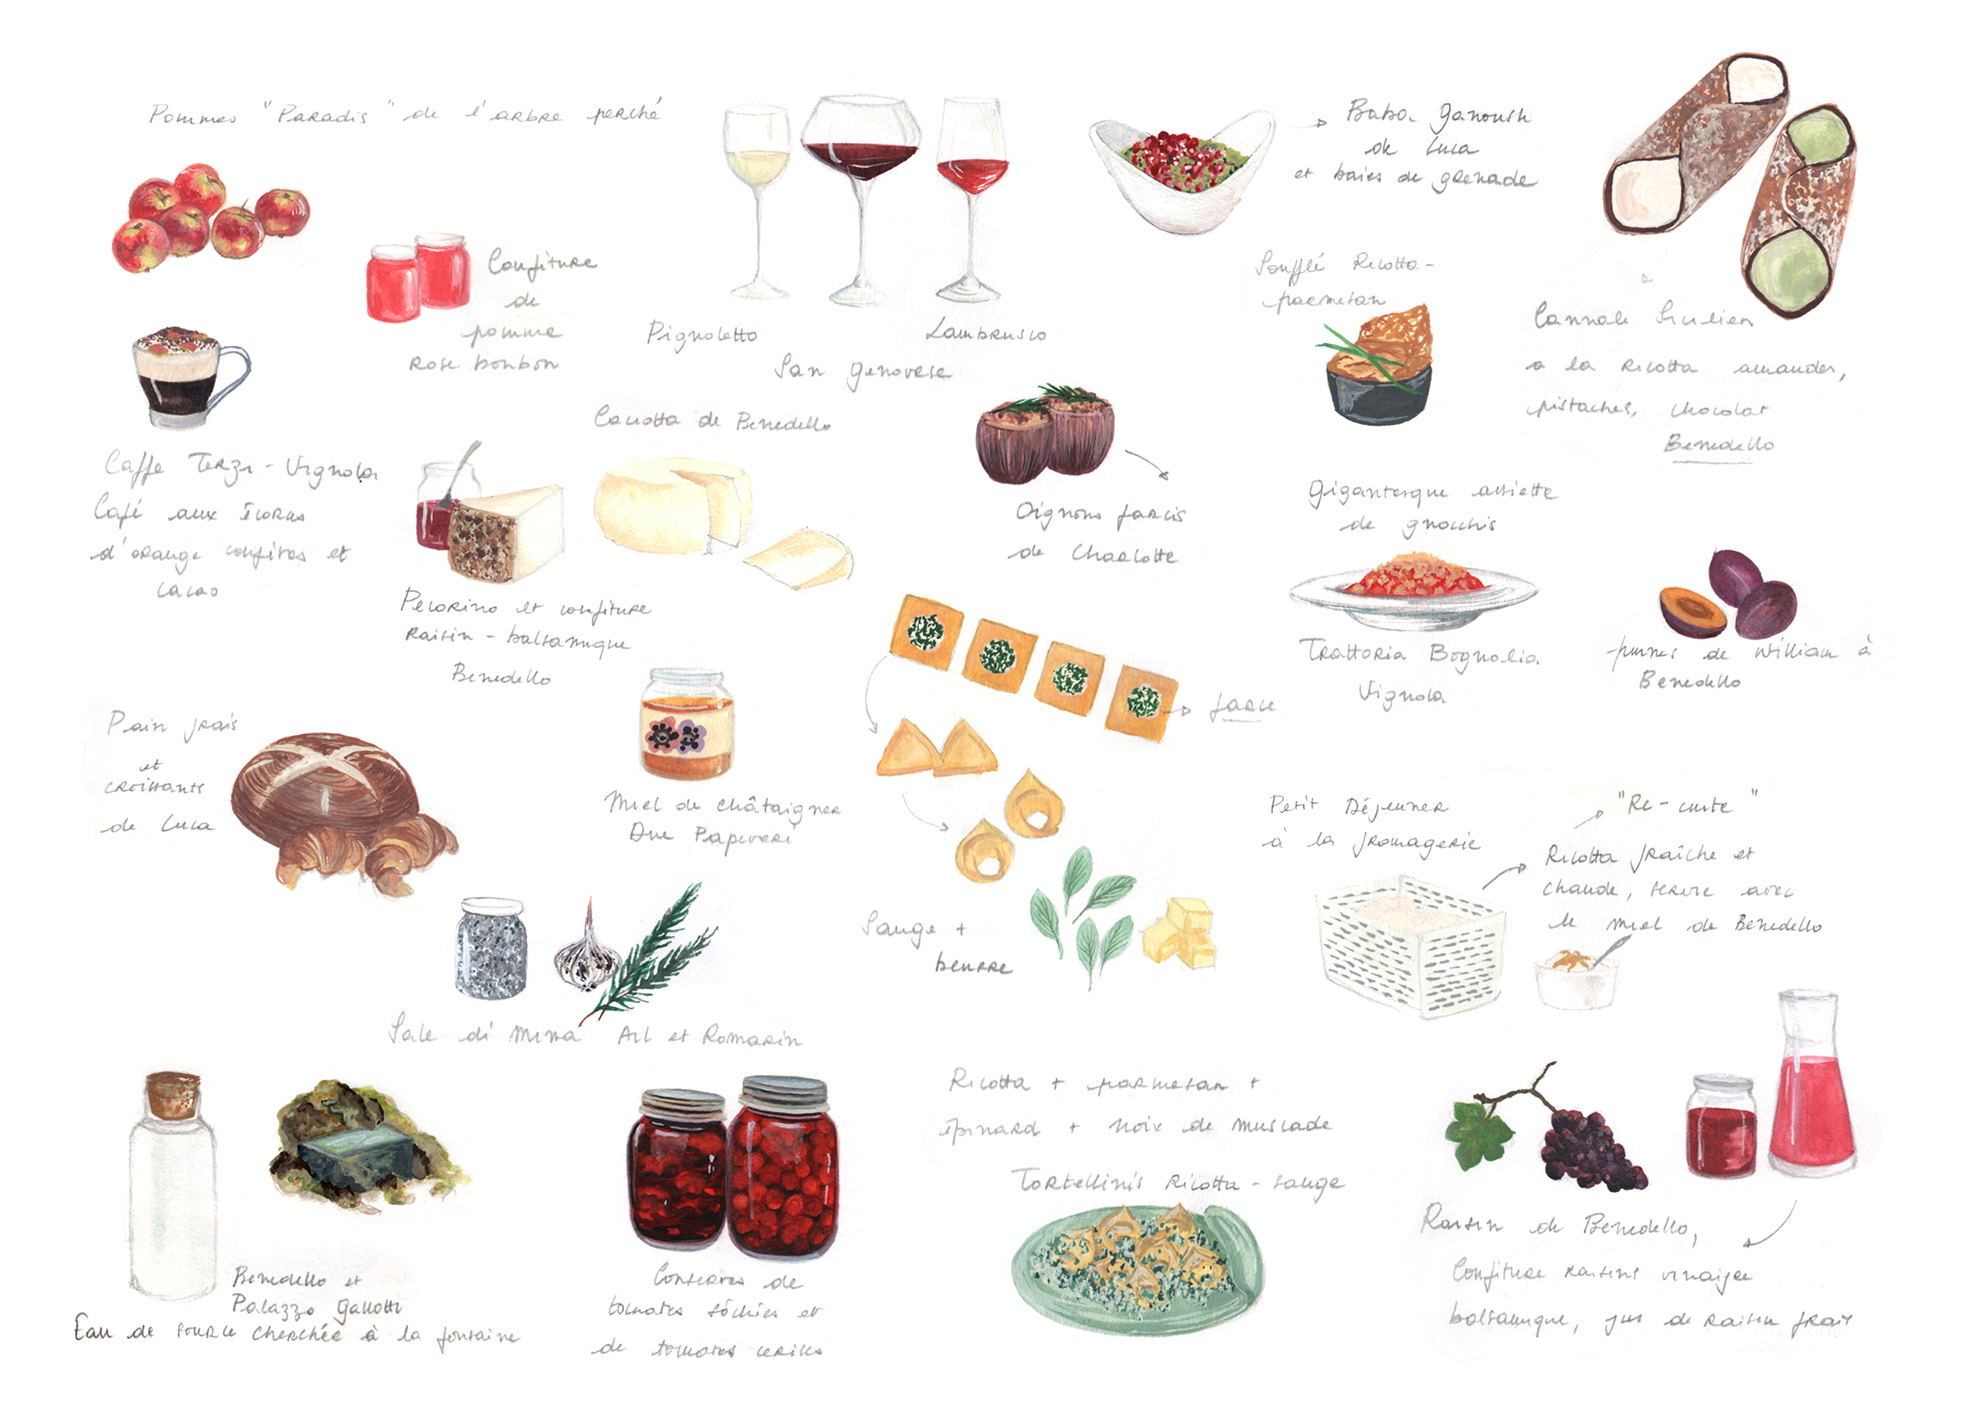 Pommes "Paradis" de l'arbre perché
Confiture
de
pomme
Rose bonbon
Pignoletto
San Genovese
Lambrusco
Baba Ganoush
de Luca
et baies de grenade
Soufflé Ricotta-
parmesan
Cannole Sicilien
a la Ricotta amandes,
pistaches, chocolat
Benedello
Caffe Terzi - Vignola
Café aux écorces
d'orange confites et
cacao
Caciotta de Benedello
Pecorino et confiture
raisin - balsamique
Benedello
Oignons farcis
de Charlotte
Gigantesque assiette
de gnocchis
Trattoria Bognolia
Vignola
prunes de William à
Benedello
farce
Pain frais
et
croissants
de Luca
Miel de châtaigner
Due Papaveri
Sauge +
beurre
Petit Déjeuner
à la fromagerie
"Re-cuite"
Ricotta fraîche et
chaude, servie avec
le miel de Benedello
Sale di Mirna Ail et Romarin
Ricotta + parmesan +
épinard + noix de muscade
Tortellinis Ricotta - sauge
Benedello et
Palazzo Gallotti
Eau de source cherchée à la fontaine
Conserves de
tomates séchées et
de tomates cerises
Raisin de Benedello,
Confiture raisins vinaigre
balsamique, jus de raisin frais